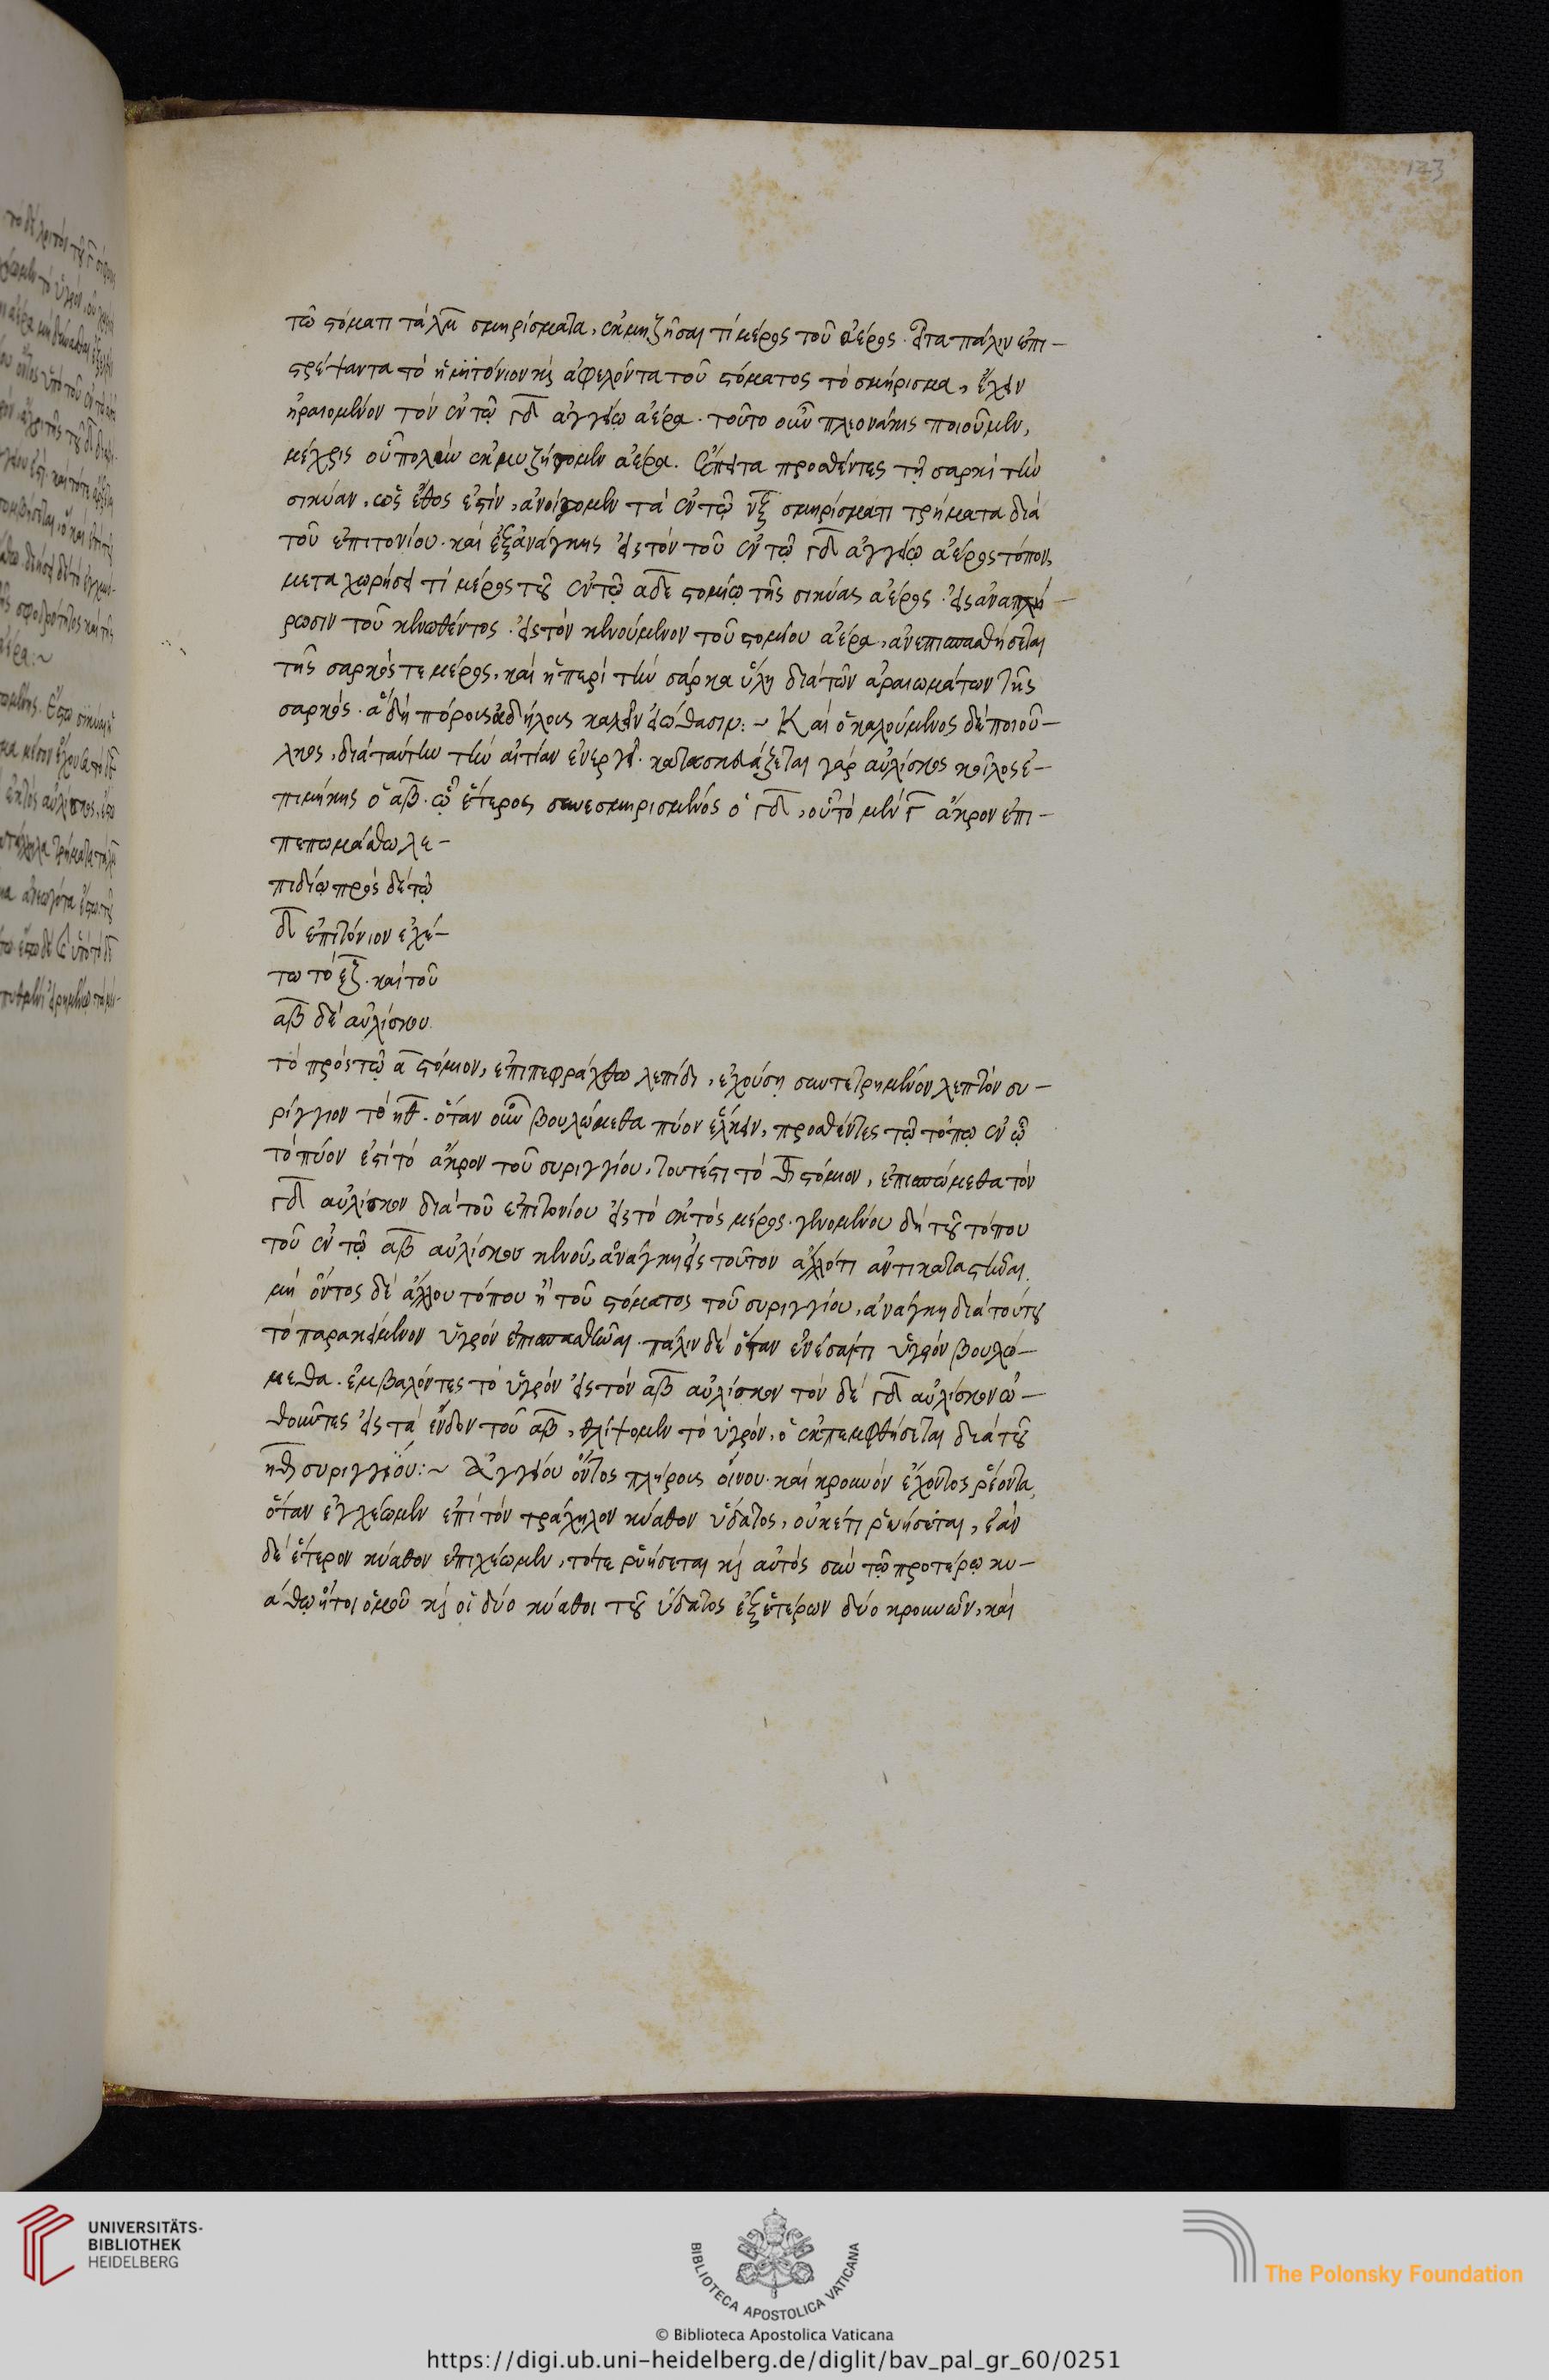 123
τῶ στόματι τὰ λμ σμηρίσματα, ἐκμυζῆσαι τὶ μέρος τοῦ ἀέρος. εἶτα πάλιν ἐπι-
στρέψαντα τὸ ἡμιτόνιον κỳ ἀφελόντα τοῦ στόματος τὸ σμήρισμα, ἔχειν
ἠραιομένον τὸν ἐν τῶ γδ ἀγγείω ἀέρα. τοῦτο οὖν πλεονάκις ποιοῦμεν,
μέχρις οὗ πολὺν ἐκμυζήσομεν ἀέρα. ἔπειτα προσθέντες τῆ σαρκὶ τὴν
σικύαν, ὡς ἔθος ἐστὶν, ἀνοίγομεν τὰ ἐν τῶ νξ σμηρίσματι τρήματα διὰ
τοῦ ἐπιτονίου. καὶ ἐξανάγκης εἰς τὸν τοῦ ἐν τῶ γδ ἀγγείω ἀέρος τόπον,
μεταχωρήσει τὶ μέρος τοῦ ἐν τῶ αδε στομίω τῆς σικύας ἀέρος. εἰς ἀναπλή-
ρωσιν τοῦ κενωθέντος. εἰς τὸν κενούμενον τοῦ στομίου ἀέρα, ἀνεπισπασθήσεται
τῆς σαρκός τε μέρος, καὶ ἡ περὶ τὴν σάρκα ὕλη διὰ τῶν ἀραιωμάτων τῆς
σαρκός. ἃ δὴ πόρους ἀδήλους καλεῖν εἰώθασιν:~ Καὶ ὁ καλούμενος δὲ ποιοῦ-
λκος, διὰ ταύτην τὴν αἰτίαν ἐνεργεῖ. κατασκευάζεται γὰρ αὐλίσκος κοῖλος ἐ-
πιμήκης ὁ αβ. ὧ ἕτερος συνεσμηρισμένος ὁ γδ, οὗ τὸ μὲν γ ἄκρον ἐπι-
πεπωμάσθω λε-
πιδίω πρὸς δὲ τῶ
δ ἐπιτόνιον ἐχέ-
τω τὸ εζ. καὶ τοῦ
αβ δὲ αὐλίσκου
τὸ πρὸς τῶ α στόμιον, ἐπιπεφράχθω λεπίδι, ἐχούση συντετρημένον λεπτὸν συ-
ρίγγιον τὸ ηθ. ὅταν οὖν βουλώμεθα πύον ἕλκειν, προσθέντες τῶ τόπω ἐν ὧ
τὸ πύον ἐστὶ τὸ ἄκρον τοῦ συριγγίου, τουτέστι τὸ θ στόμιον, ἐπισπώμεθα τὸν
γδ αὐλίσκον διὰ τοῦ ἐπιτονίου εἰς τὸ ἐκτὸς μέρος. γενομένου δὴ τοῦ τόπου
τοῦ ἐν τῶ αβ αὐλίσκου κενοῦ, ἀνάγκη εἰς τοῦτον ἄλλό τι ἀντικαταστῆναι.
μὴ ὄντος δὲ ἄλλου τόπου ἢ τοῦ στόματος τοῦ συριγγίου, ἀνάγκη διὰ τούτου
τὸ παρακείμενον ὑγρὸν ἐπισπασθῆναι. πάλιν δὲ ὅταν ἐνέσαί τι ὑγρὸν βουλώ-
μεθα. ἐμβαλόντες τὸ ὑγρὸν εἰς τὸν αβ αὐλίσκον τὸν δὲ γδ αὐλίσκον ὠ-
θοῦντες εἰς τὰ ἔνδον τοῦ αβ, θλίψομεν τὸ ὑγρὸν, ὃ ἐκπεμφθήσεται διὰ τοῦ
ηθ συριγγίου:~ Ἀγγείου ὄντος πλήρους οἴνου. καὶ κρουνὸν ἔχοντος ῥέοντα,
ὅταν ἐγχέωμεν ἐπὶ τὸν τράχηλον κύαθον ὕδατος, οὐκέτι ῥυήσεται, ἐὰν
δὲ ἕτερον κύαθον ἐπιχέωμεν, τότε ῥυήσεται κỳ αὐτὸς σὺν τῶ προτέρω κυ-
άθω ἤτοι ὁμοῦ κỳ οἱ δύο κύαθοι τοῦ ὕδατος ἐξ ἑτέρων δύο κρουνῶν, καὶ
UNIVERSITÄTS-
BIBLIOTHEK
HEIDELBERG
BIBLIOTECA APOSTOLICA VATICANA
The Polonsky Foundation
© Biblioteca Apostolica Vaticana
https://digi.ub.uni-heidelberg.de/diglit/bav_pal_gr_60/0251